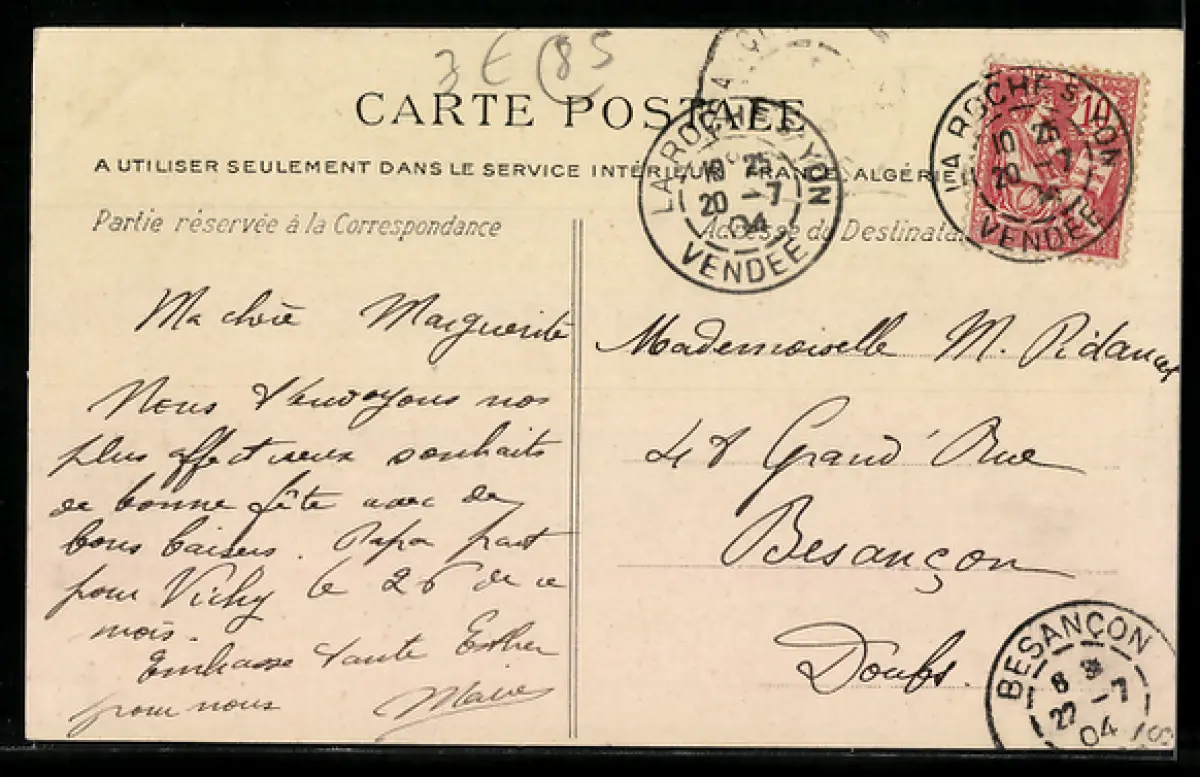 3 € 85
CARTE POSTALE
A UTILISER SEULEMENT DANS LE SERVICE INTÉRIEUR FRANCE, ALGÉRIE
Partie réservée à la Correspondance
Adresse du Destinata
LA ROCHE S YON
10 25
20 -7
04
VENDÉE
10
LA ROCHE S YON
10 25
20 -7
VENDÉE
Ma chère Marguerite
Nous t'envoyons nos
plus affectueux souhaits
de bonne fête avec de
bons baisers. Papa part
pour Vichy le 26 de ce
mois.
Embrasse tante Esther
pour nous
Mademoiselle M. Pidancet
48 Grand' Rue
Besançon
Doubs.
BESANÇON
8
22 -7
04